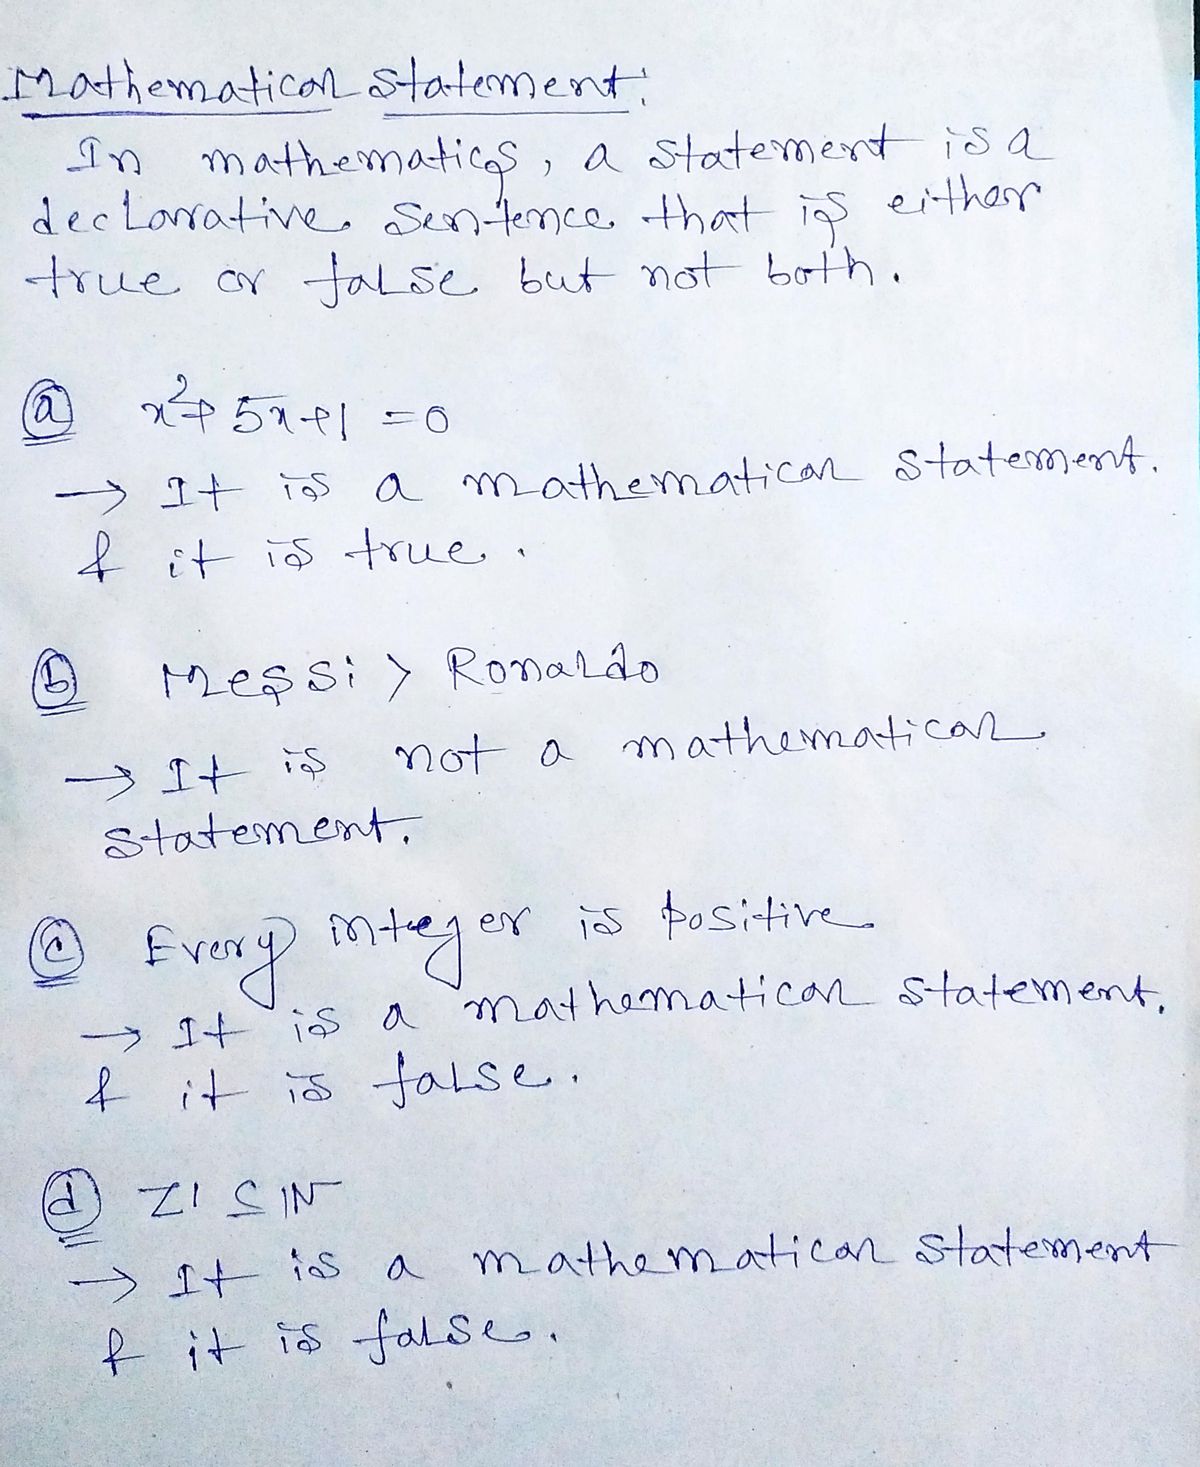 Mathematical Statement:
In mathematics, a statement is a
declarative sentence that is either
true or false but not both.
(a) x²+5x+1 =0
→ It is a mathematical statement.
& it is true.
(b) Messi > Ronaldo
→ It is not a mathematical
statement.
(c) Every integer is positive
→ It is a mathematical statement.
& it is false.
(d) ℤ ⊆ ℕ
→ It is a mathematical statement
& it is false.